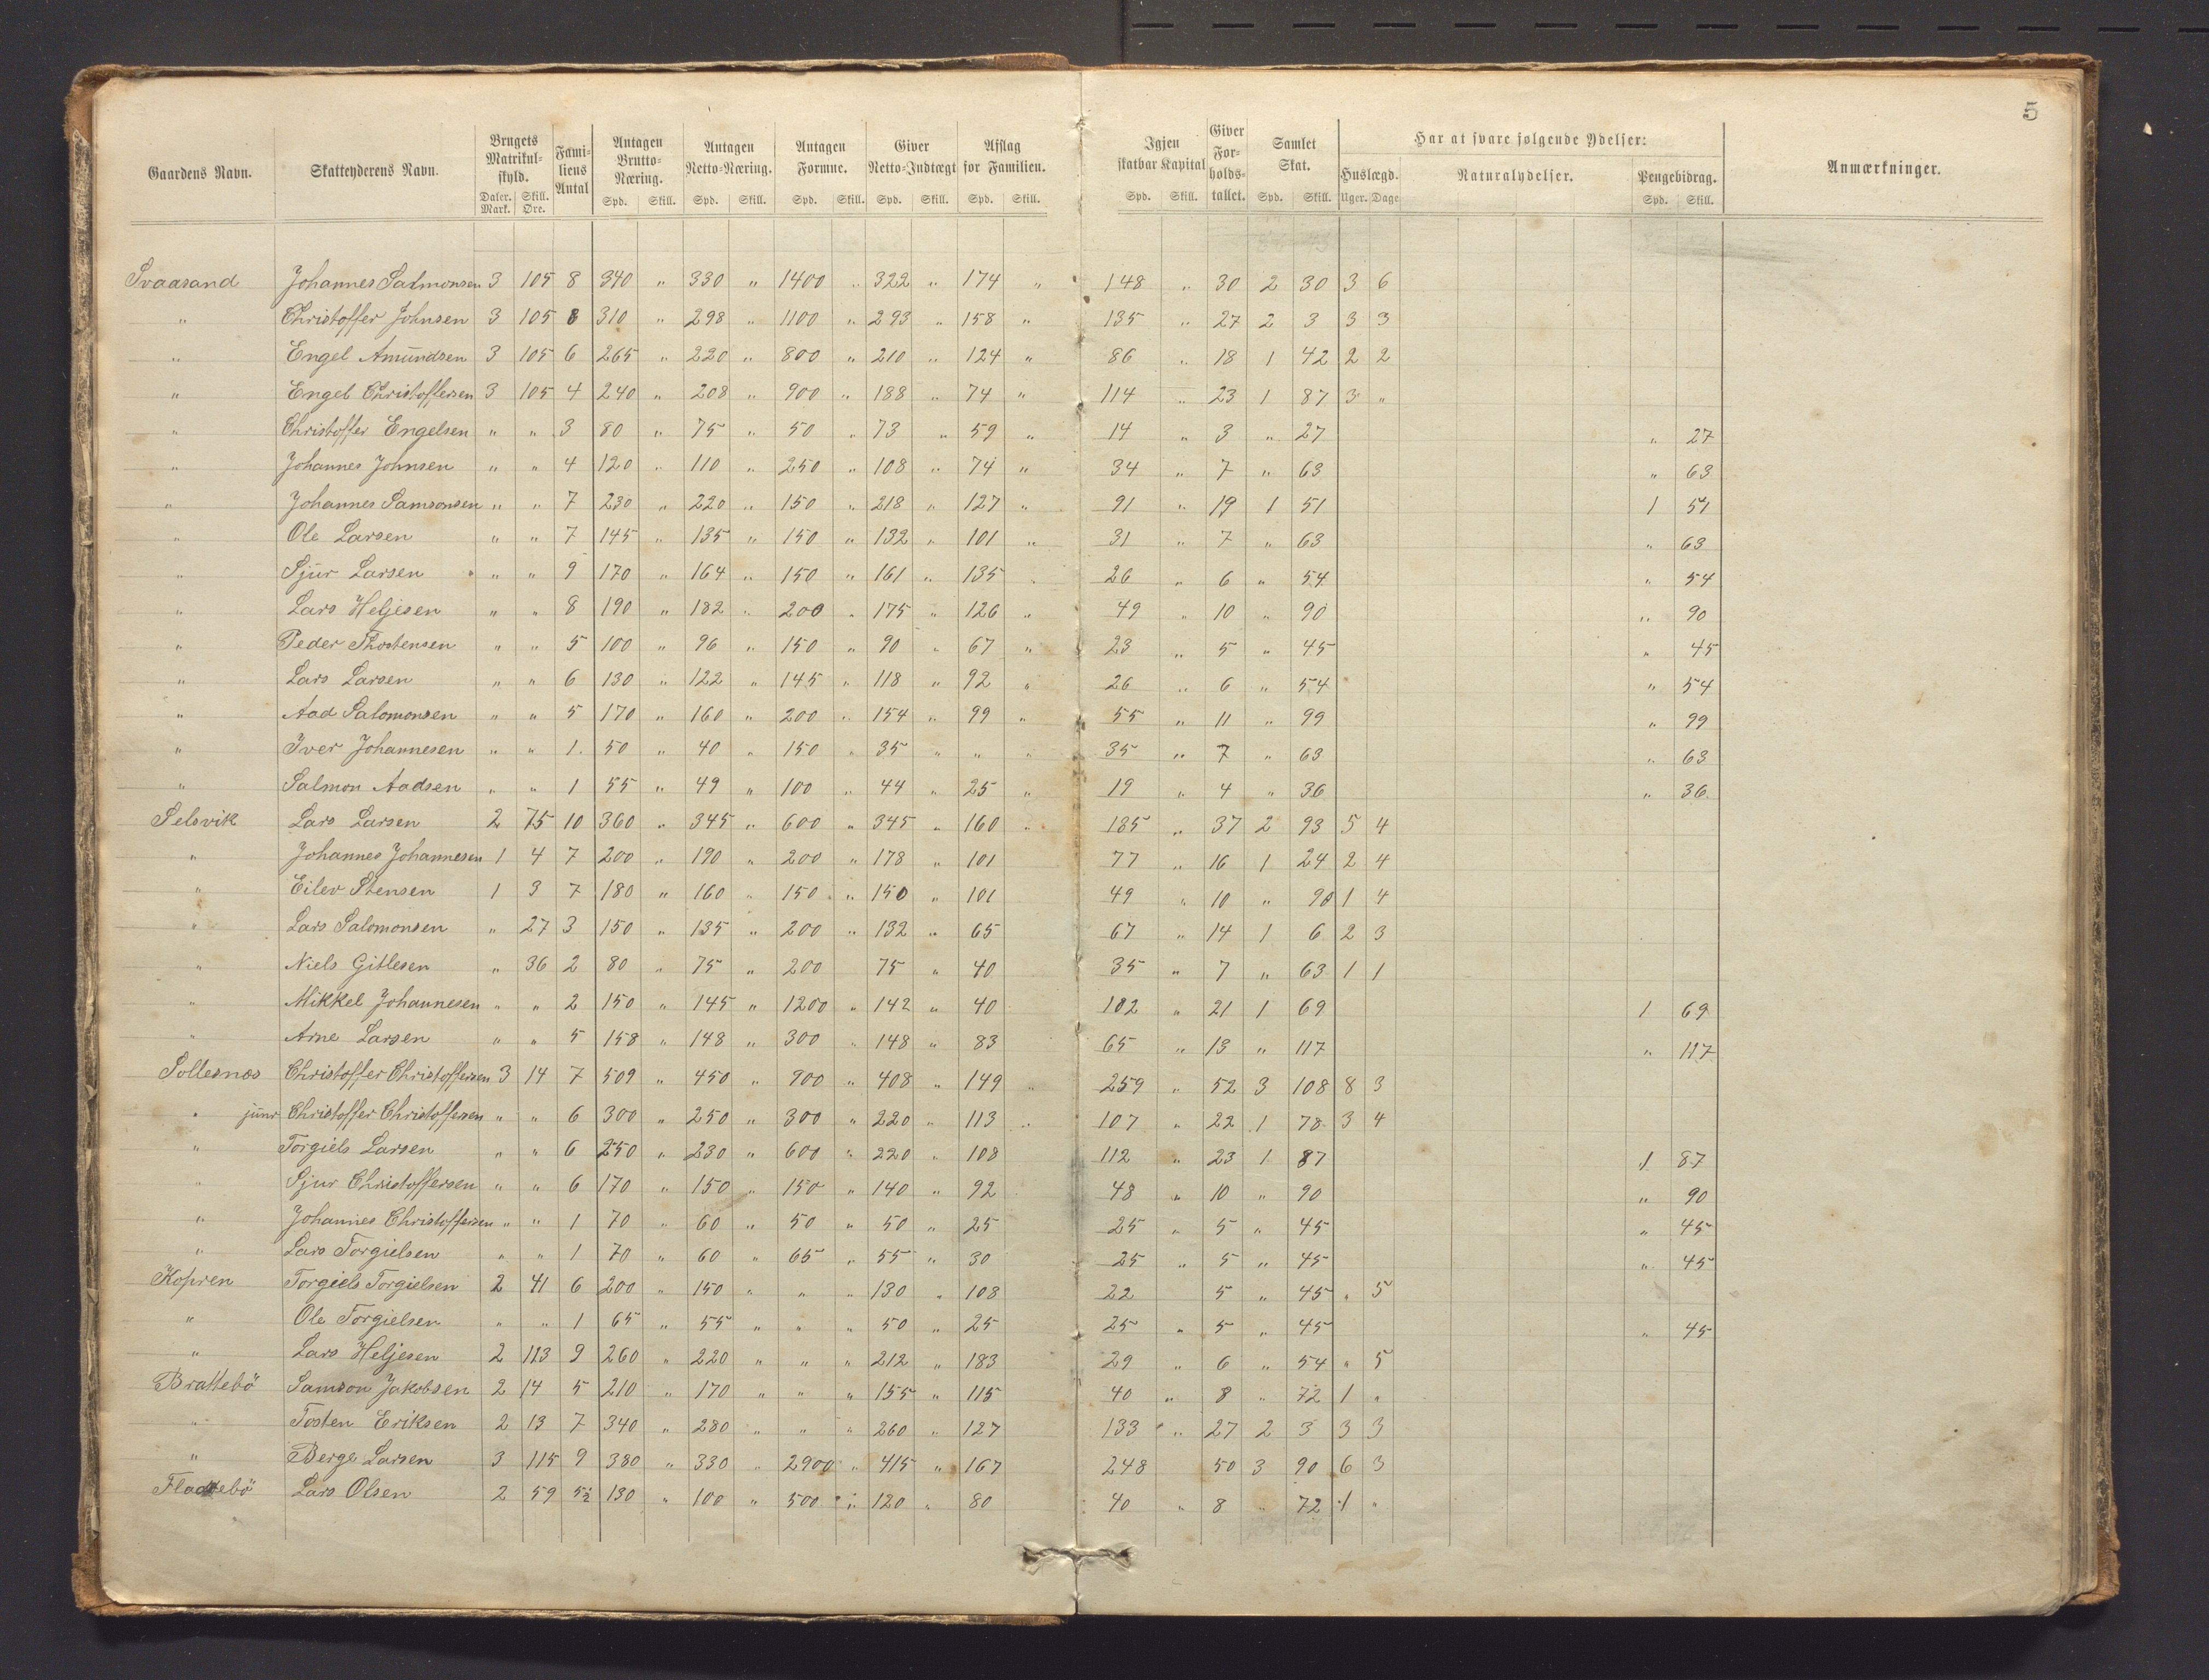 5
Gaardens Navn. Skatteyderens Navn. Brugets Matrikul-skyld. Daler. Mark. Skill. Øre. Fami-liens Antal Antagen Brutto-Næring. Spd. Skill. Antagen Netto-Næring. Spd. Skill. Antagen Formue. Spd. Skill. Giver Netto-Indtægt Spd. Skill. Afslag for Familien. Spd. Skill. Igjen skatbar Kapital Spd. Skill. Giver For-holds-tallet. Samlet Skat. Spd. Skill. Har at svare følgende Ydelser: Huslægd. Uger. Dage Naturalydelser. Pengebidrag. Spd. Skill. Anmærkninger.
Svaasand Johannes Salmonsen 3 105 8 340 " 330 " 1400 " 322 " 174 " 148 " 30 2 30 3 6
" Christoffer Johnsen 3 105 8 310 " 298 " 1100 " 293 " 158 " 135 " 27 2 3 3 3
" Engel Amundsen 3 105 6 265 " 220 " 800 " 210 " 124 " 86 " 18 1 42 2 2
" Engel Christoffersen 3 105 4 240 " 208 " 900 " 188 " 74 " 114 " 23 1 87 3 "
" Christoffer Engelsen " " 3 80 " 75 " 50 " 73 " 59 " 14 " 3 " 27 " 27
" Johannes Johnsen " " 4 120 " 110 " 250 " 108 " 74 " 34 " 7 " 63 " 63
" Johannes Samsonsen " " 7 230 " 220 " 150 " 218 " 127 " 91 " 19 1 51 1 51
" Ole Larsen " " 7 145 " 135 " 150 " 132 " 101 " 31 " 7 " 63 " 63
" Sjur Larsen " " 9 170 " 164 " 150 " 161 " 135 " 26 " 6 " 54 " 54
" Lars Heljesen " " 8 190 " 182 " 200 " 175 " 126 " 49 " 10 " 90 " 90
" Peder Thostensen " " 5 100 " 96 " 150 " 90 " 67 " 23 " 5 " 45 " 45
" Lars Larsen " " 6 130 " 122 " 145 " 118 " 92 " 26 " 6 " 54 " 54
" Aad Salomonsen " " 5 170 " 160 " 200 " 154 " 99 " 55 " 11 " 99 " 99
" Iver Johannesen " " 1 50 " 40 " 150 " 35 " " " 35 " 7 " 63 " 63
" Salmon Aadsen " " 1 55 " 49 " 100 " 44 " 25 " 19 " 4 " 36 " 36
Selsvik Lars Larsen 2 75 10 360 " 345 " 600 " 345 " 160 " 185 " 37 2 93 5 4
" Johannes Johannesen 1 4 7 200 " 190 " 200 " 178 " 101 77 " 16 1 24 2 4
" Eilev Stensen 1 3 7 180 " 160 " 150 " 150 " 101 49 " 10 " 90 1 4
" Lars Salomonsen " 27 3 150 " 135 " 200 " 132 " 65 67 " 14 1 6 2 3
" Niels Gitlesen " 36 2 80 " 75 " 200 75 " 40 35 " 7 " 63 1 1
" Mikkel Johannesen " " 2 150 " 145 " 1200 " 142 " 40 102 " 21 1 69 1 69
" Arne Larsen " " 5 158 " 148 " 300 " 148 " 83 65 " 13 " 117 " 117
Sollesnæs Christoffer Christoffersen 3 14 7 509 " 450 " 900 " 408 " 149 " 259 " 52 3 108 8 3
" junr Christoffer Christoffersen " " 6 300 " 250 " 300 " 220 " 113 " 107 " 22 1 78 3 4
" Torgiels Larsen " " 6 250 " 230 " 600 " 220 " 108 112 " 23 1 87 1 87
" Sjur Christoffersen " " 6 170 " 150 " 150 " 140 " 92 48 " 10 " 90 " 90
" Johannes Christoffersen " " 1 70 " 60 " 50 " 50 " 25 25 " 5 " 45 " 45
" Lars Torgielsen " " 1 70 " 60 " 65 " 55 " 30 25 " 5 " 45 " 45
Kopren Torgiels Torgielsen 2 41 6 200 " 150 " " " 130 " 108 22 5 " 45 " 5
" Ole Torgielsen " " 1 65 " 55 " " " 50 " 25 25 " 5 " 45 " 45
" Lars Heljesen 2 113 9 260 " 220 " " " 212 " 183 29 " 6 " 54 " 5
Brattebö Samson Jakobsen 2 14 5 210 " 170 " " " 155 " 115 40 " 8 " 72 1 "
" Tosten Eriksen 2 13 7 340 " 280 " " " 260 " 127 133 " 27 2 3 3 3
" Berge Larsen 3 115 9 380 " 330 " 2900 " 415 " 167 248 50 3 90 6 3
Flaatebö Lars Olsen 2 59 5½ 130 " 100 " 500 " 120 " 80 40 " 8 " 72 1 "